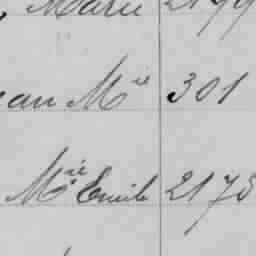 , Marie 2199
ean Mie 301
Mie Emile 2173